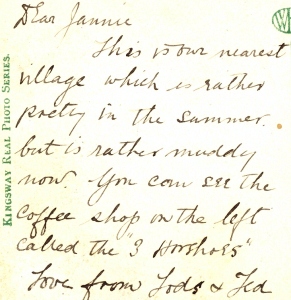 Dear Jannie
This is our nearest
village which is rather
pretty in the summer.
but is rather muddy
now. You can see the
Coffee shop on the left
called the "3 Horshoes"
Love from Tods & Ted
KINGSWAY REAL PHOTO SERIES.